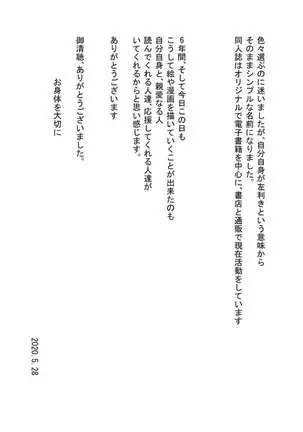 色々選ぶのに迷いましたが、自分自身が左利きという意味から
そのままシンプルな名前になりました。
同人誌はオリジナルで電子書籍を中心に、書店と通販で現在活動をしています
6年間、そして今日この日も
こうして絵や漫画を描いていくことが出来たのも
自分自身と、親愛なる人
読んでくれる人達、応援してくれる人達が
いてくれるからと思い感じます。
ありがとうございます
御清聴、ありがとうございました。
お身体を大切に
2020.5.28